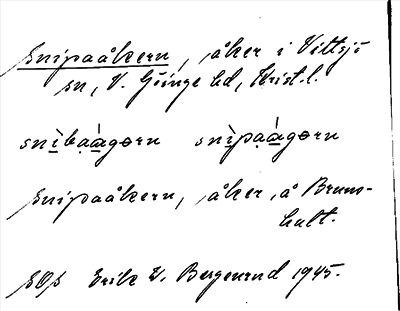 Snipaåkern, åker i Vittsjö
sn, V. Göinge hd, Krist. l.
snìbạágɵrn snìpạágɵrn
Snipaåkern, åker, å Bruns-
hult.
SOS Erik W. Bergenrud 1945.